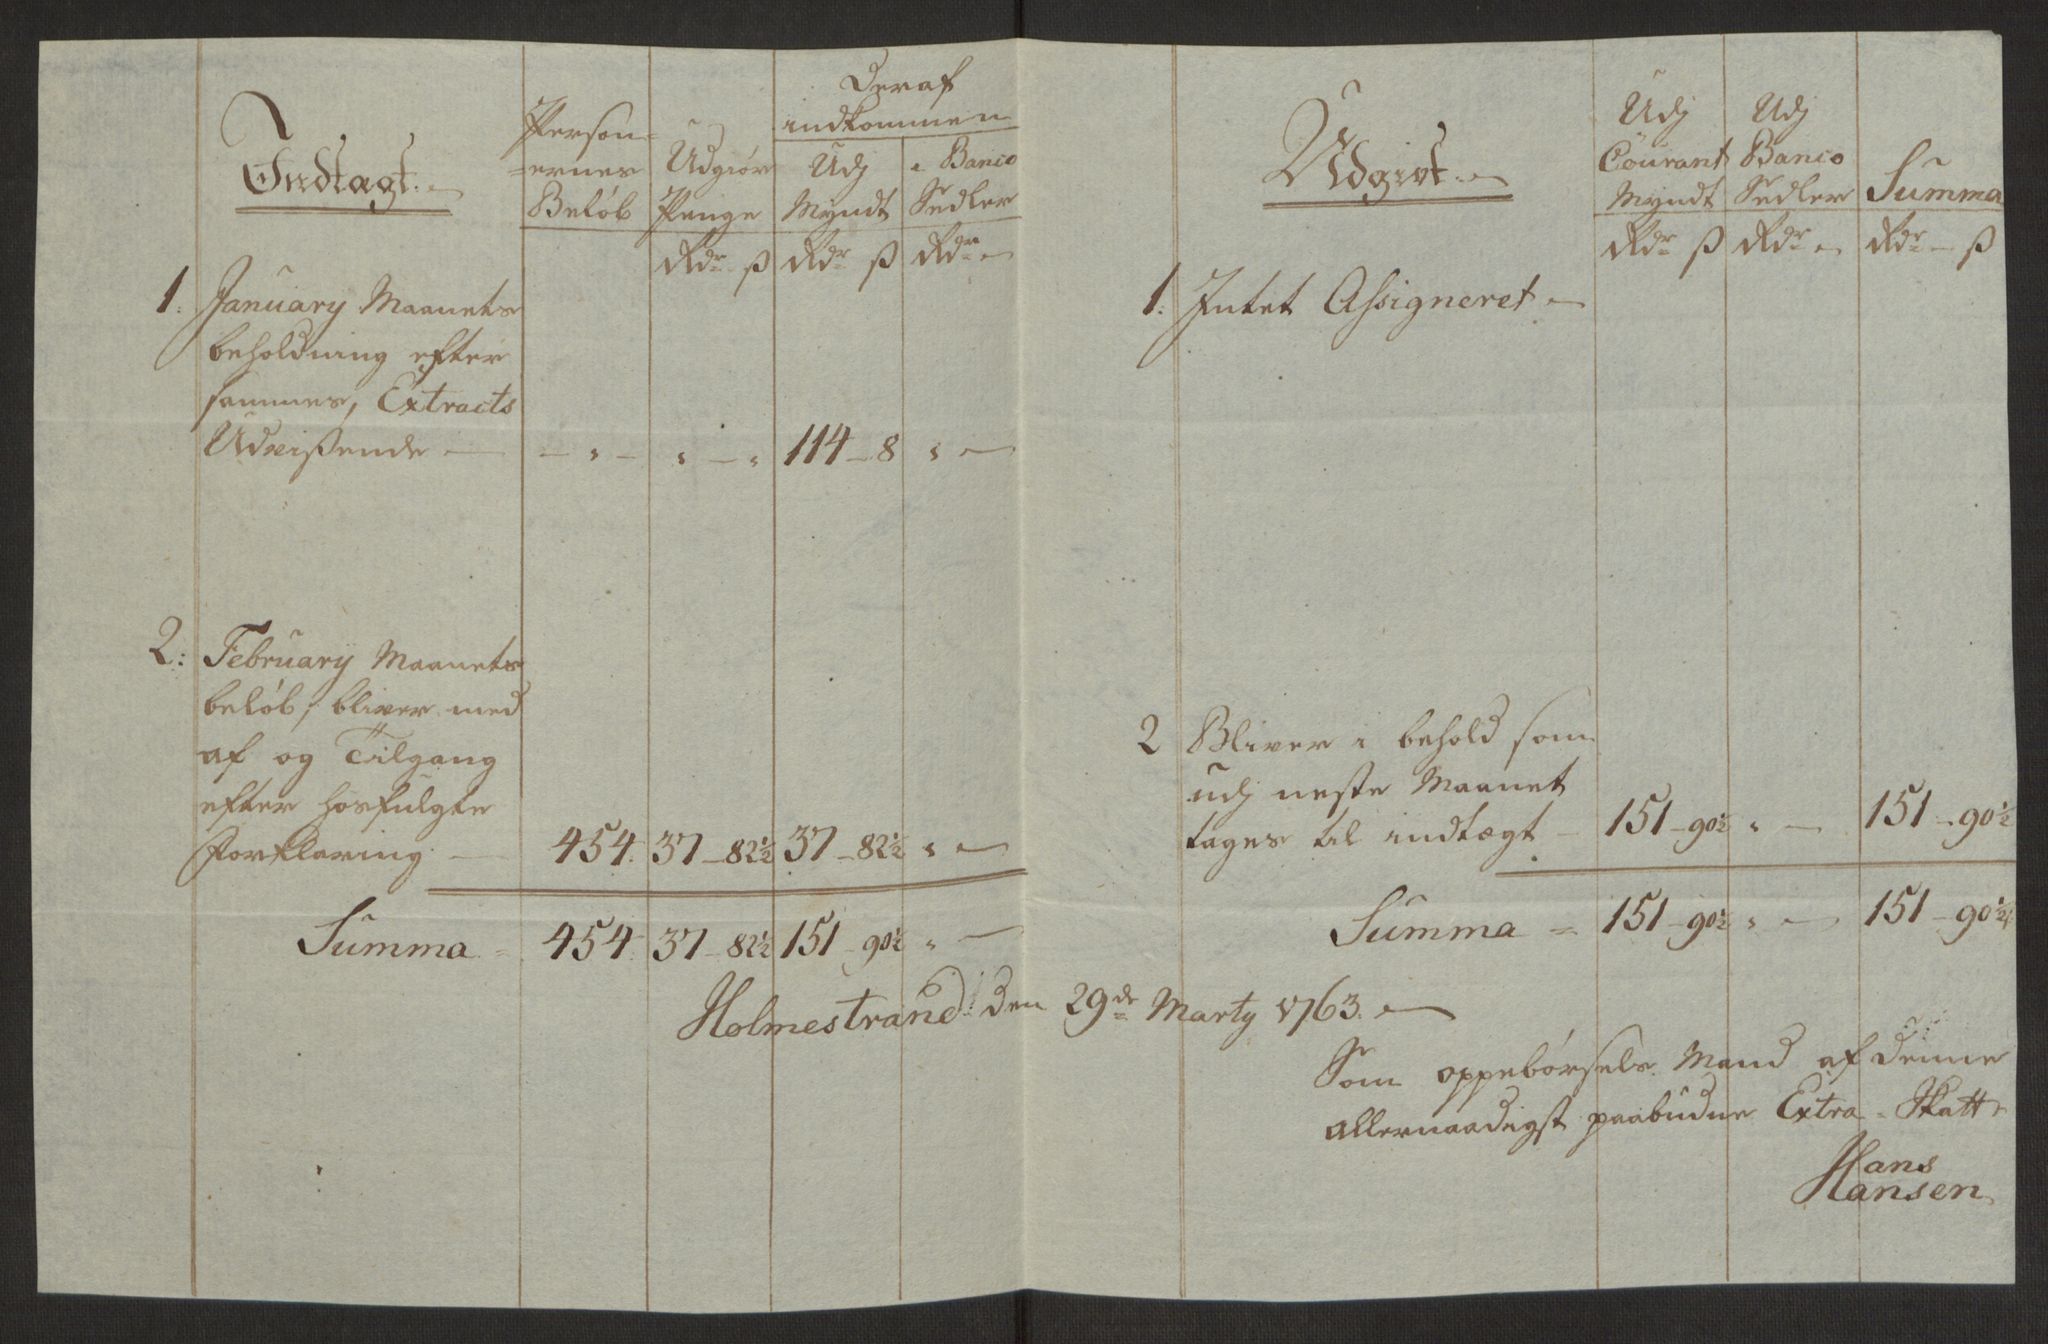 Indtægt.
Person-
ernes
Beløb
Udgiör
Penge
Deraf
indkommen
Udj
Myndt
Banco
Sedler
Rdr ß Rdr ß Rdr
1. January Maanets
beholdning efter
sammes, Extracts
Udvißende — 114 - 8
2: February Maanets
beløb, bliver med
af og Tilgang
efter hosfulgte
Forklaring — 454. 37 - 82½ 37 - 82½
Summa 454. 37 - 82½ 151 - 90½
Udgivt.
Udj
Courant
Myndt
Udj
Banco
Sedler
Summa
Rdr ß Rdr Rdr ß
1. Intet Assigneret
2 Bliver i behold som
udj neste Maanet
tages til indtægt 151 - 90½ 151 - 90½
Summa 151 - 90½ 151 - 90½
Holmestrand den 29de Marty 1763.
Som oppebørsels Mand af denne
allernaadigst paabudne Extra-Skatt
Hans
Hansen